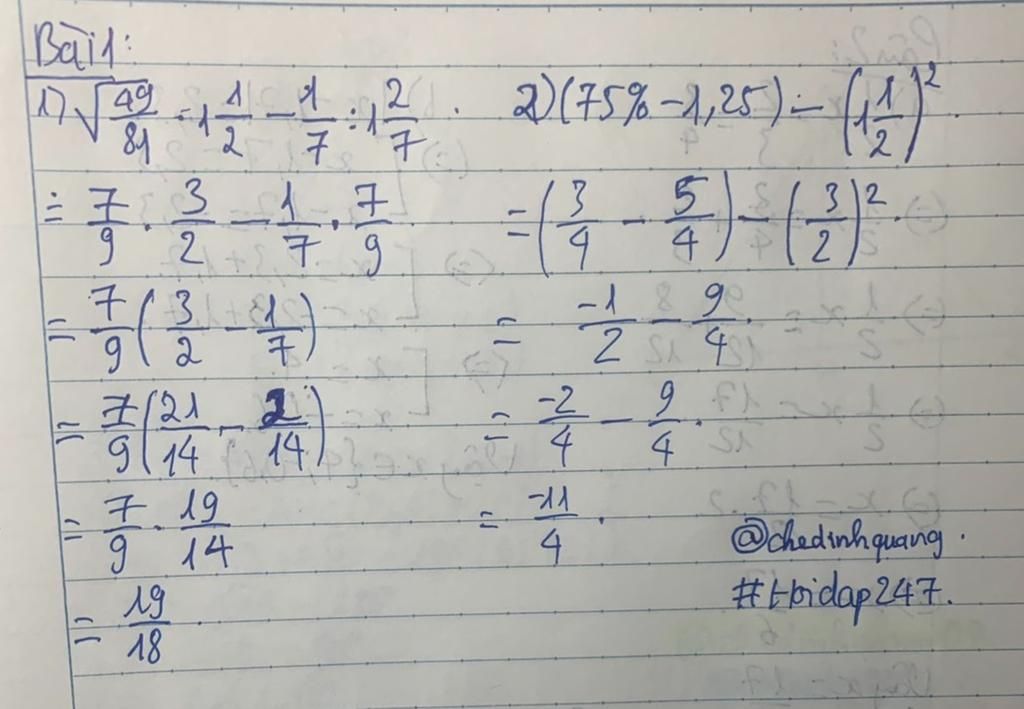 Bài 1:
1) √(49/81) · 1 1/2 - 1/7 : 1 2/7 .
= 7/9 . 3/2 - 1/7 . 7/9
= 7/9 (3/2 - 1/7)
= 7/9 (21/14 - 2/14)
= 7/9 . 19/14
= 19/18
2) (75% - 1,25) - (1 1/2)² .
= (3/4 - 5/4) - (3/2)² .
= -1/2 - 9/4 .
= -2/4 - 9/4 .
= -11/4 .
@chedinhquang .
#tbidap247.